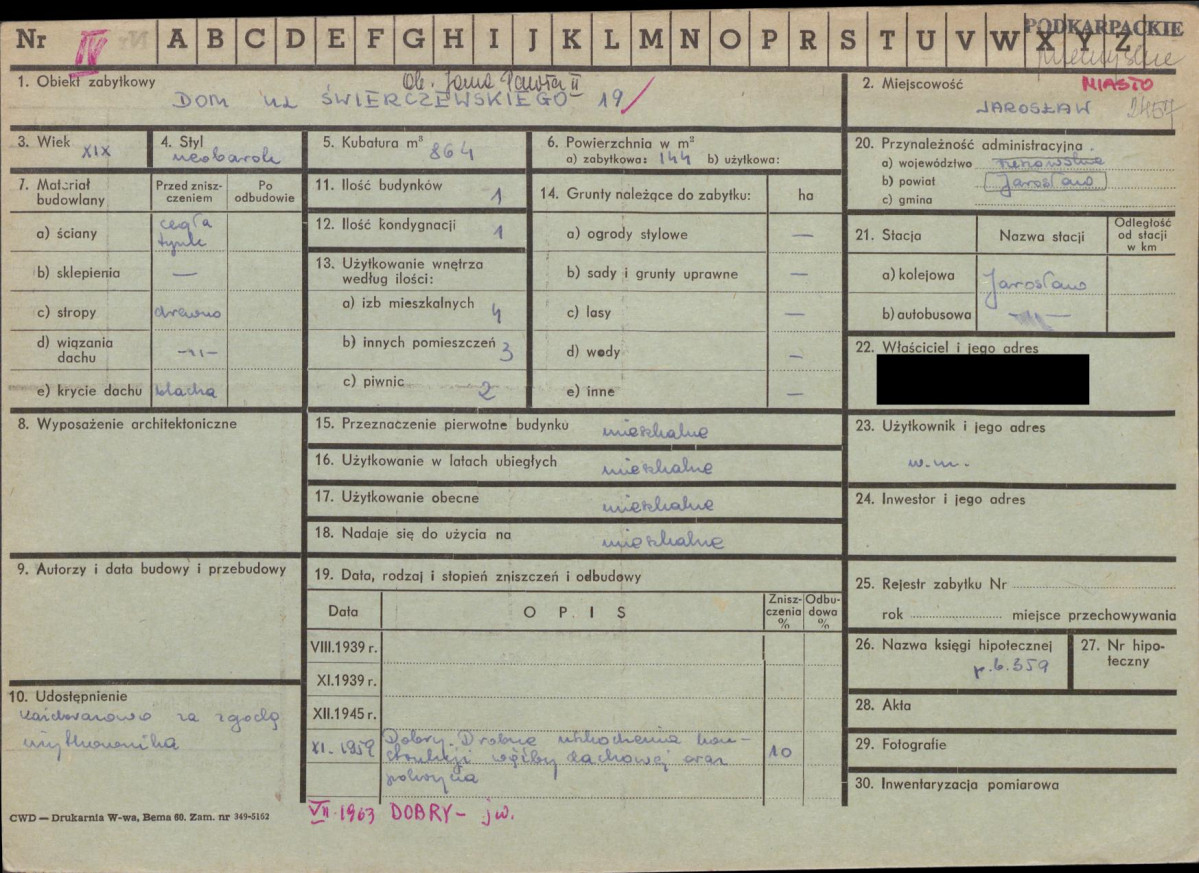 Nr IV A B C D E F G H I J K L M N O P R S T U V W X Y Z
PODKARPACKIE
przemyskie
1. Obiekt zabytkowy
Ob. Jana Pawła II
DOM UL ŚWIERCZEWSKIEGO 19
2. Miejscowość
MIASTO
JAROSŁAW 2457
3. Wiek XIX
4. Styl neobarok
5. Kubatura m³ 864
6. Powierzchnia w m²
a) zabytkowa: 144 b) użytkowa:
7. Materiał budowlany
Przed zniszczeniem
Po odbudowie
a) ściany cegła tynk
b) sklepienia —
c) stropy drewno
d) wiązania dachu -"-
e) krycie dachu blacha
8. Wyposażenie architektoniczne
9. Autorzy i data budowy i przebudowy
10. Udostępnienie
za zgodą
użytkownika
11. Ilość budynków 1
12. Ilość kondygnacji 1
13. Użytkowanie wnętrza
według ilości:
a) izb mieszkalnych 4
b) innych pomieszczeń 3
c) piwnic 2
14. Grunty należące do zabytku: ha
a) ogrody stylowe —
b) sady i grunty uprawne —
c) lasy —
d) wody —
e) inne —
15. Przeznaczenie pierwotne budynku mieszkalne
16. Użytkowanie w latach ubiegłych mieszkalne
17. Użytkowanie obecne mieszkalne
18. Nadaje się do użycia na mieszkalne
19. Data, rodzaj i stopień zniszczeń i odbudowy
Data OPIS Zniszczenia % Odbudowa %
VIII.1939 r.
XI.1939 r.
XII.1945 r.
XI-1959 Dobry. Drobne uszkodzenia kon-
strukcji więźby dachowej oraz 10
pokrycia
VII.1963 DOBRY - jw.
20. Przynależność administracyjna
a) województwo rzeszowskie
b) powiat Jarosław
c) gmina
21. Stacja Nazwa stacji Odległość od stacji w km
a) kolejowa Jarosław
b) autobusowa -"-
22. Właściciel i jego adres
23. Użytkownik i jego adres
w.m.
24. Inwestor i jego adres
25. Rejestr zabytku Nr
rok miejsce przechowywania
26. Nazwa księgi hipotecznej
p.b.359
27. Nr hipoteczny
28. Akta
29. Fotografie
30. Inwentaryzacja pomiarowa
CWD — Drukarnia W-wa, Bema 60. Zam. nr 349-5162